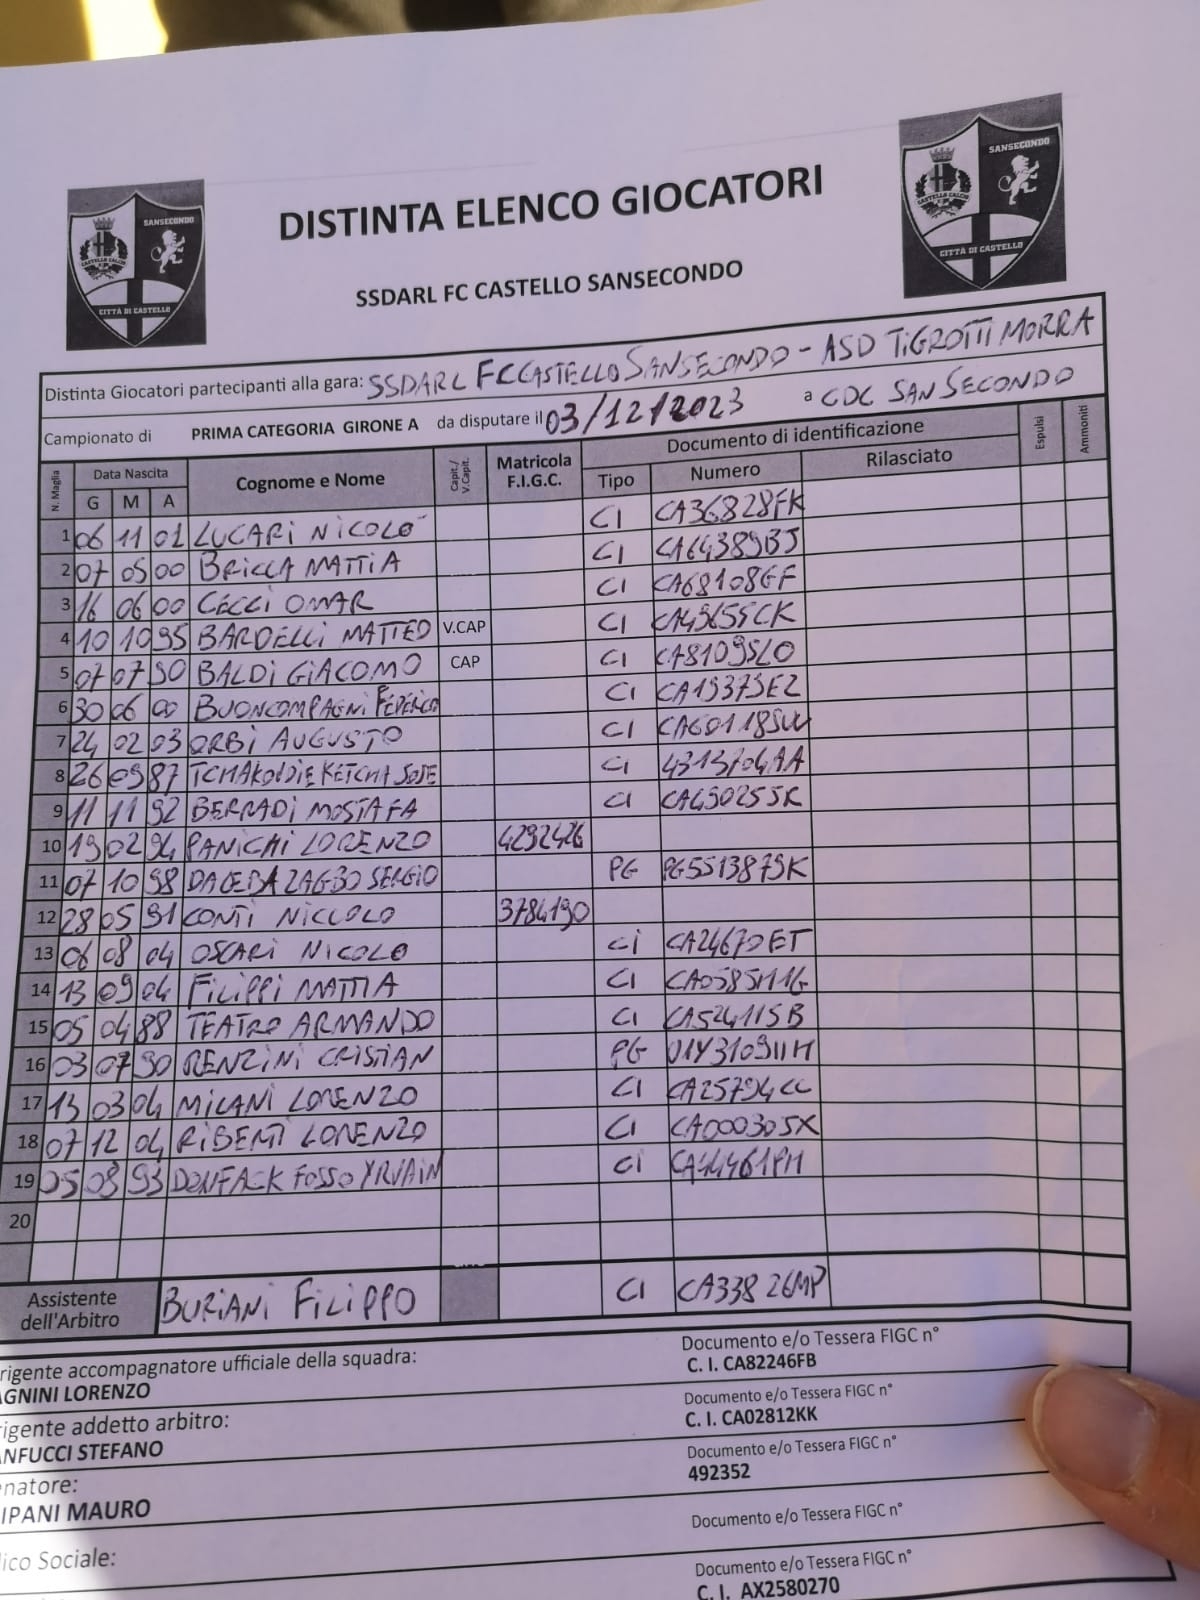 SANSECONDO
CASTELLO CALCIO
CITTÀ DI CASTELLO
SANSECONDO
CASTELLO CALCIO
CITTÀ DI CASTELLO
DISTINTA ELENCO GIOCATORI
SSDARL FC CASTELLO SANSECONDO
Distinta Giocatori partecipanti alla gara: SSDARL FC CASTELLO SANSECONDO - ASD TIGROTTI MORRA
Campionato di PRIMA CATEGORIA GIRONE A da disputare il 03/12/2023 a CDC SAN SECONDO
N. Maglia Data Nascita Cognome e Nome Capit./ V.Capit. Matricola F.I.G.C. Documento di identificazione Espulsi Ammoniti
G M A Tipo Numero Rilasciato
1 06 11 01 LUCARI NICOLO' CI CA36828FK
2 07 05 00 BRICCA MATTIA CI CA64389BJ
3 16 06 00 CECCI OMAR CI CA68108GF
4 10 10 95 BARDELLI MATTEO V.CAP CI CA43655CK
5 07 07 90 BALDI GIACOMO CAP CI CA81095LO
6 30 06 00 BUONCOMPAGNI FEDERICO CI CA19379EZ
7 24 02 03 ORBI AUGUSTO CI
8 26 09 87 KETCHA JOSE CI 4313704AA
9 11 11 92 BERRADI MOSTAFA CI
10 19 02 94 PANICHI LORENZO 4292426
11 07 10 98 ZAGBO SERGIO PG PG5513879K
12 28 05 91 CONTI NICCOLO 3784190
13 06 08 04 OSCARI NICOLO CI CA24670ET
14 13 09 04 FILIPPI MATTIA CI
15 05 04 88 TEATRO ARMANDO CI CA52411SB
16 03 07 90 RENZINI CRISTIAN PG
17 13 03 04 MILANI LORENZO CI CA25794CC
18 07 12 04 RIBERTI LORENZO CI CA00030SX
19 05 08 93 DONFACK FOSSO YRVAIN CI CA44461PH
20
Assistente dell'Arbitro BURIANI FILIPPO CI CA33826MP
rigente accompagnatore ufficiale della squadra: Documento e/o Tessera FIGC n°
AGNINI LORENZO C. I. CA82246FB
rigente addetto arbitro: Documento e/o Tessera FIGC n°
ANFUCCI STEFANO C. I. CA02812KK
enatore: Documento e/o Tessera FIGC n°
IPANI MAURO 492352
ico Sociale: Documento e/o Tessera FIGC n°
Documento e/o Tessera FIGC n°
C. I. AX2580270